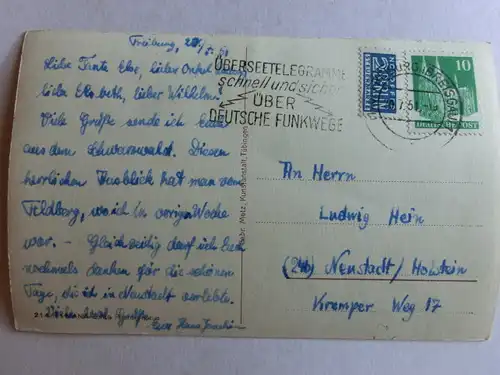 Freiburg,
Liebe Tante Else, lieber Onkel
liebe Elsbeth, lieber Wilhelm!
Viele Grüße sende ich Euch
aus dem Schwarzwald. Diesen
herrlichen Ausblick hat man vom
Feldberg, wo ich in voriger Woche
war. – Gleichzeitig darf ich Euch
nochmals danken für die schönen
Tage, die ich in Neustadt verlebte.
Viele Grüße
Euer Hans Joachim
Gebr. Metz, Kunstanstalt, Tübingen
ÜBERSEETELEGRAMME
schnell und sicher
ÜBER
DEUTSCHE FUNKWEGE
10
An Herrn
Ludwig Hein
(24b) Neustadt/Holstein
Kremper Weg 17